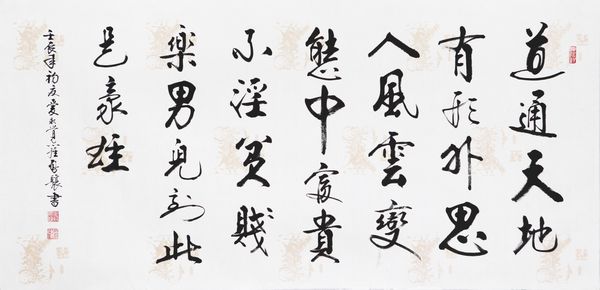 道通天地
有形外思
入風雲變
態中富貴
不淫貧賤
樂男兒到此
是豪雄
壬辰年初夏書